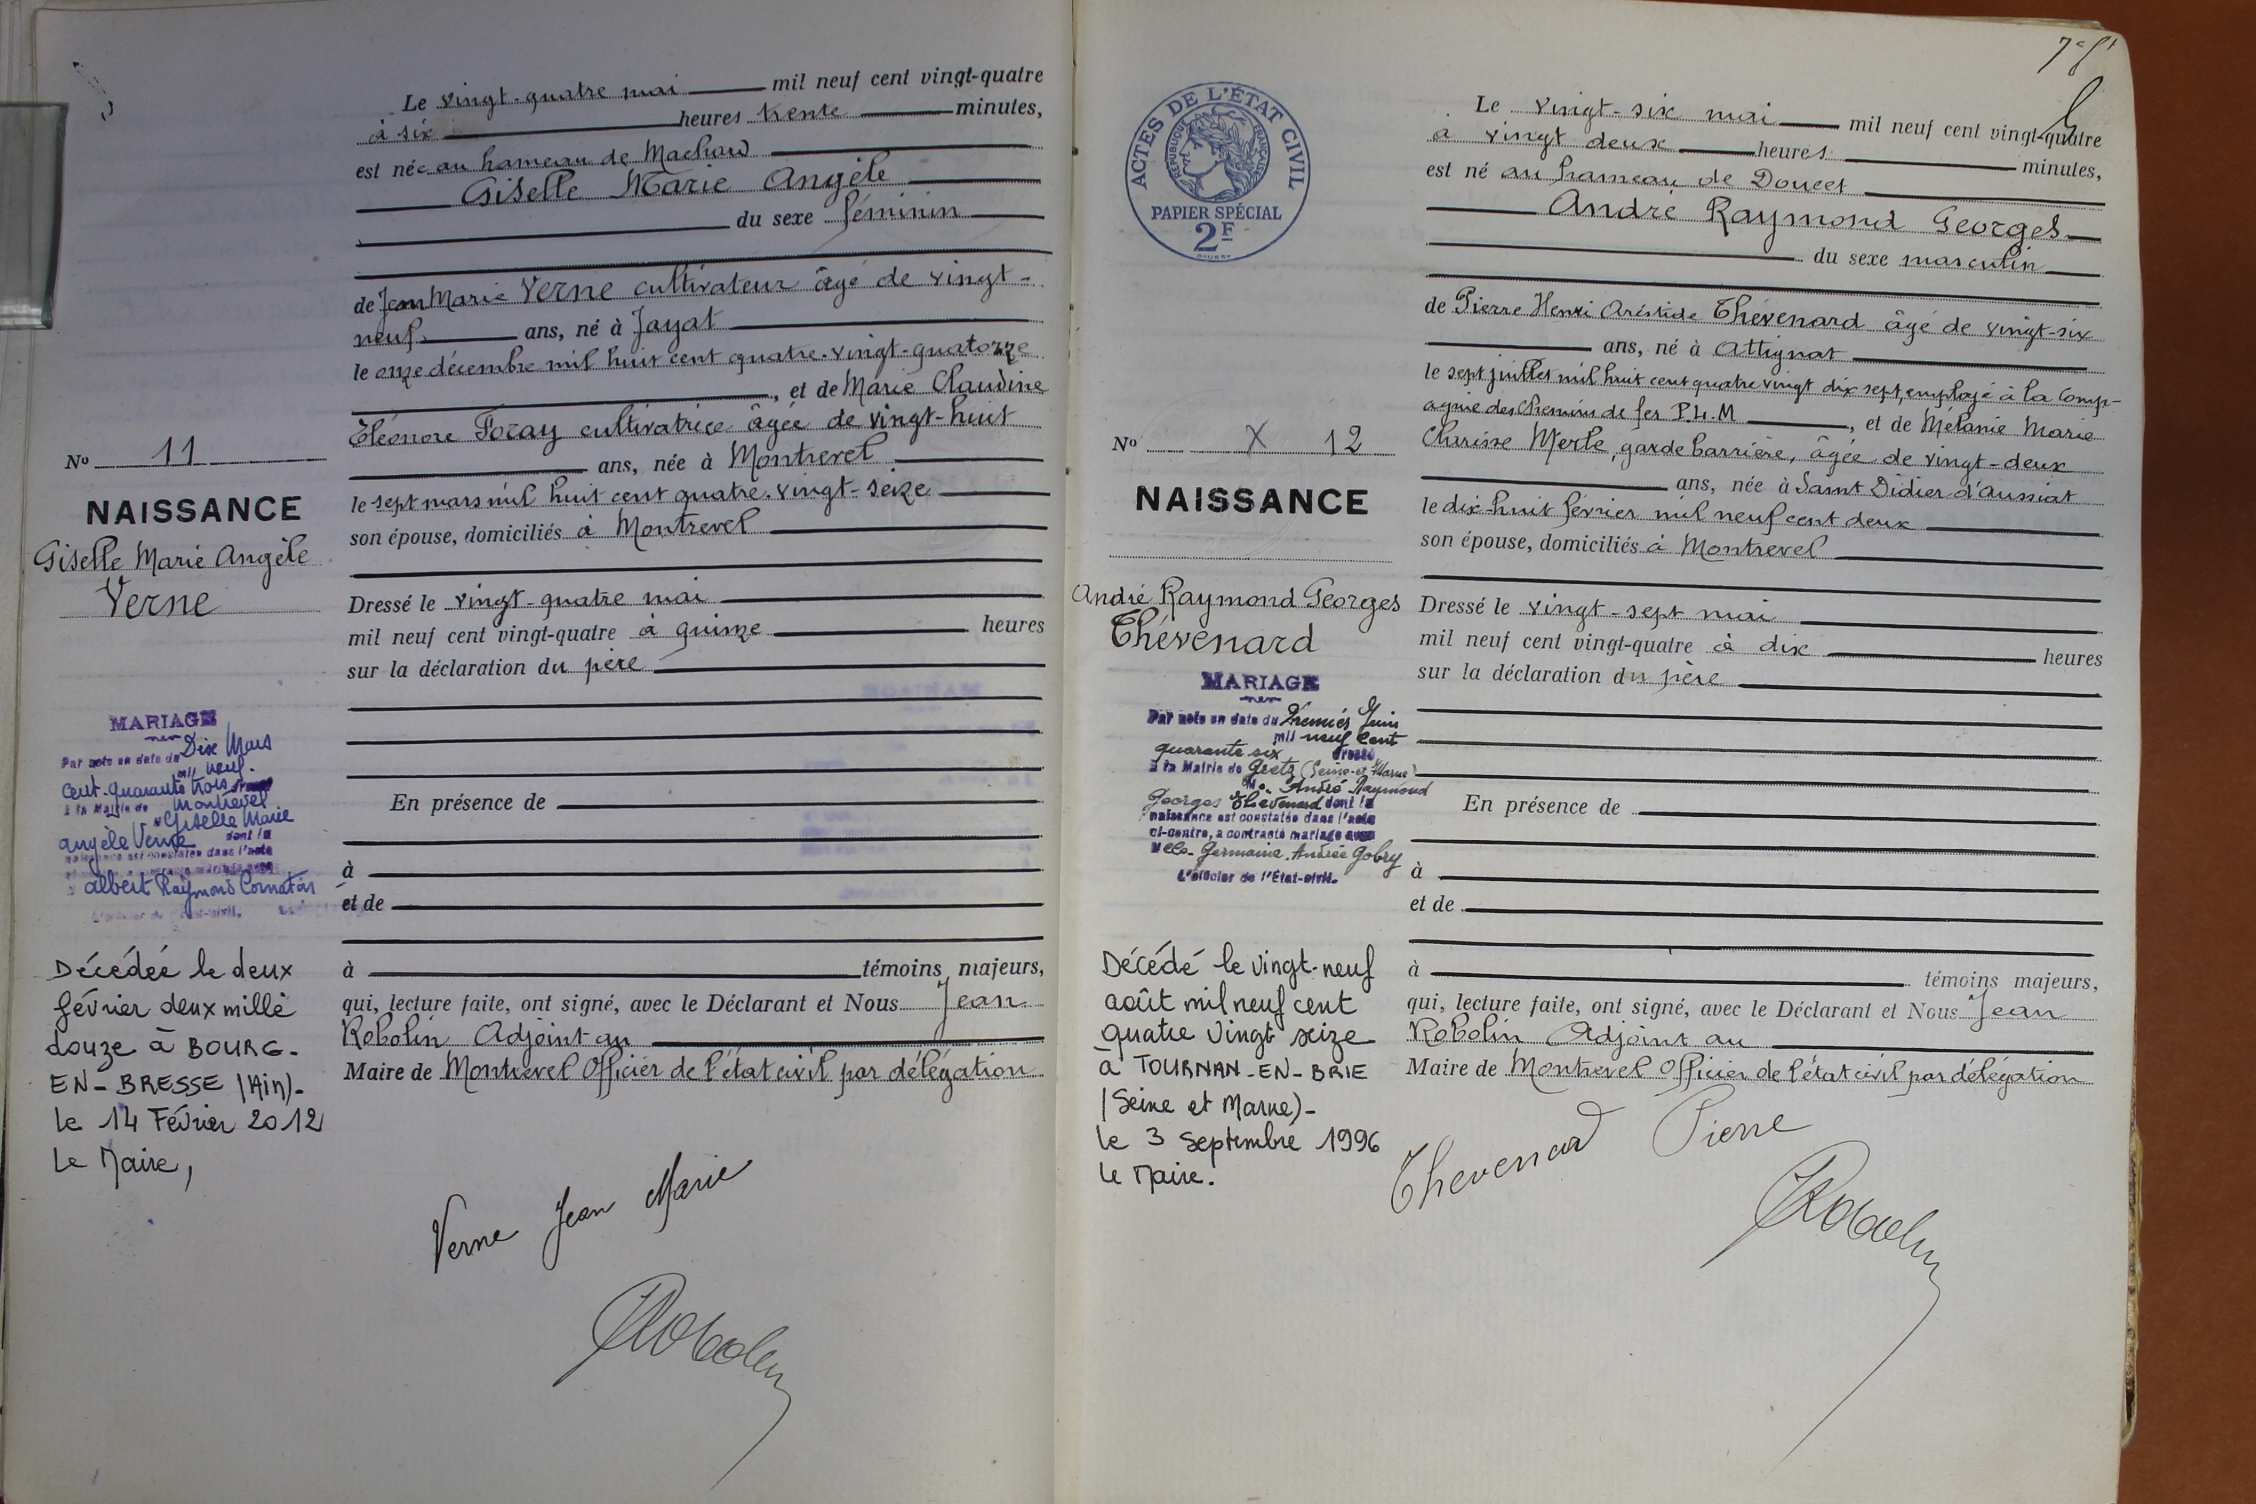 Le vingt-quatre mai mil neuf cent vingt-quatre
à six heures trente minutes,
est née au hameau de Machard
Giselle Marie Angèle
du sexe féminin
de Jean Marie Verne cultivateur âgé de vingt-
neuf ans, né à Jayat
le onze décembre mil huit cent quatre-vingt-quatorze
, et de Marie Claudine
Eléonore Foray cultivatrice âgée de vingt-huit
ans, née à Montrevel
le sept mars mil huit cent quatre-vingt-seize
son épouse, domiciliés à Montrevel
Dressé le vingt-quatre mai
mil neuf cent vingt-quatre à quinze heures
sur la déclaration du père
En présence de
à
et de
à témoins majeurs,
qui, lecture faite, ont signé, avec le Déclarant et Nous Jean
Robolin Adjoint au
Maire de Montrevel Officier de l'état civil par délégation
Verne Jean Marie
Robolin
No 11
NAISSANCE
Giselle Marie Angèle
Verne
MARIAGE
Par acte en date du Dix Mars
mil neuf
cent-quarante trois dressé
à la Mairie de Montrevel
Giselle Marie
Angèle Verne dont la
naissance est constatée dans l'acte
albert Raymond Cornaton
L'officier de l'État-civil.
Décédée le deux
février deux mille
douze à BOURG-
EN-BRESSE (Ain)-
le 14 Février 2012
Le Maire,
ACTES DE L'ÉTAT CIVIL
RÉPUBLIQUE FRANÇAISE
PAPIER SPÉCIAL
2F
Le vingt-six mai mil neuf cent vingt-quatre
à vingt deux heures minutes,
est né au hameau de Doucet
André Raymond Georges
du sexe masculin
de Pierre Henri Aristide Thévenard âgé de vingt-six
ans, né à Attignat
le sept juillet mil huit cent quatre vingt dix sept, employé à la Comp-
agnie des Chemins de fer P.L.M , et de Mélanie Marie
Clarisse Merle, garde barrière, âgée de vingt-deux
ans, née à Saint Didier d'Aussiat
le dix-huit février mil neuf cent deux
son épouse, domiciliés à Montrevel
Dressé le vingt-sept mai
mil neuf cent vingt-quatre à dix heures
sur la déclaration du père
En présence de
à
et de
à témoins majeurs,
qui, lecture faite, ont signé, avec le Déclarant et Nous Jean
Robolin Adjoint au
Maire de Montrevel Officier de l'état civil par délégation
Thevenard Pierre
Robolin
No X 12
NAISSANCE
André Raymond Georges
Thévenard
MARIAGE
Par acte en date du Premier Juin
mil neuf Cent
quarante six dressé
à la Mairie de Gretz (Seine-et-Marne)
M. André Raymond
Georges Thévenard dont la
naissance est constatée dans l'acte
ci-contre, a contracté mariage avec
Melle Germaine Andrée Gobry
L'officier de l'État-civil.
Décédé le vingt-neuf
août mil neuf cent
quatre vingt seize
à TOURNAN-EN-BRIE
(Seine et Marne)-
le 3 Septembre 1996
Le Maire.